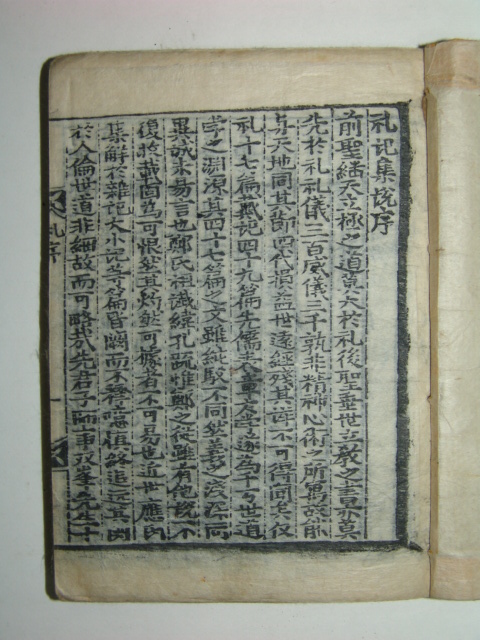 礼記集說序
前聖継天立極之道莫大於礼後聖垂世立教之書亦莫
先於礼礼儀三百威儀三千孰非精神心術之所寓故能
与天地同其節四代損益世遠經殘其詳不可得聞矣仪
礼十七篇戴記四十九篇先儒表章庸学遂為千万世道
学之淵源其四十七篇之文雖純駁不同然義之浅深同
異誠未易言也鄭氏祖讖緯孔疏惟鄭之從雖有他說不
復收載固為可恨然其灼然可據者不可易也近世應氏
集解於雜記大小記等篇皆闕而不釋噫慎終追遠其関
於人倫世道非細故而可略哉先君子師事双峯先生十
礼序